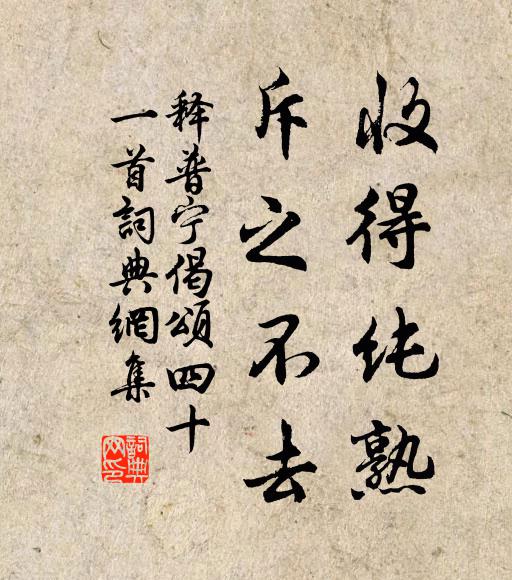 收得纯熟
斥之不去
释普宁偈頌四十
一首詞典網集
詞典
网印